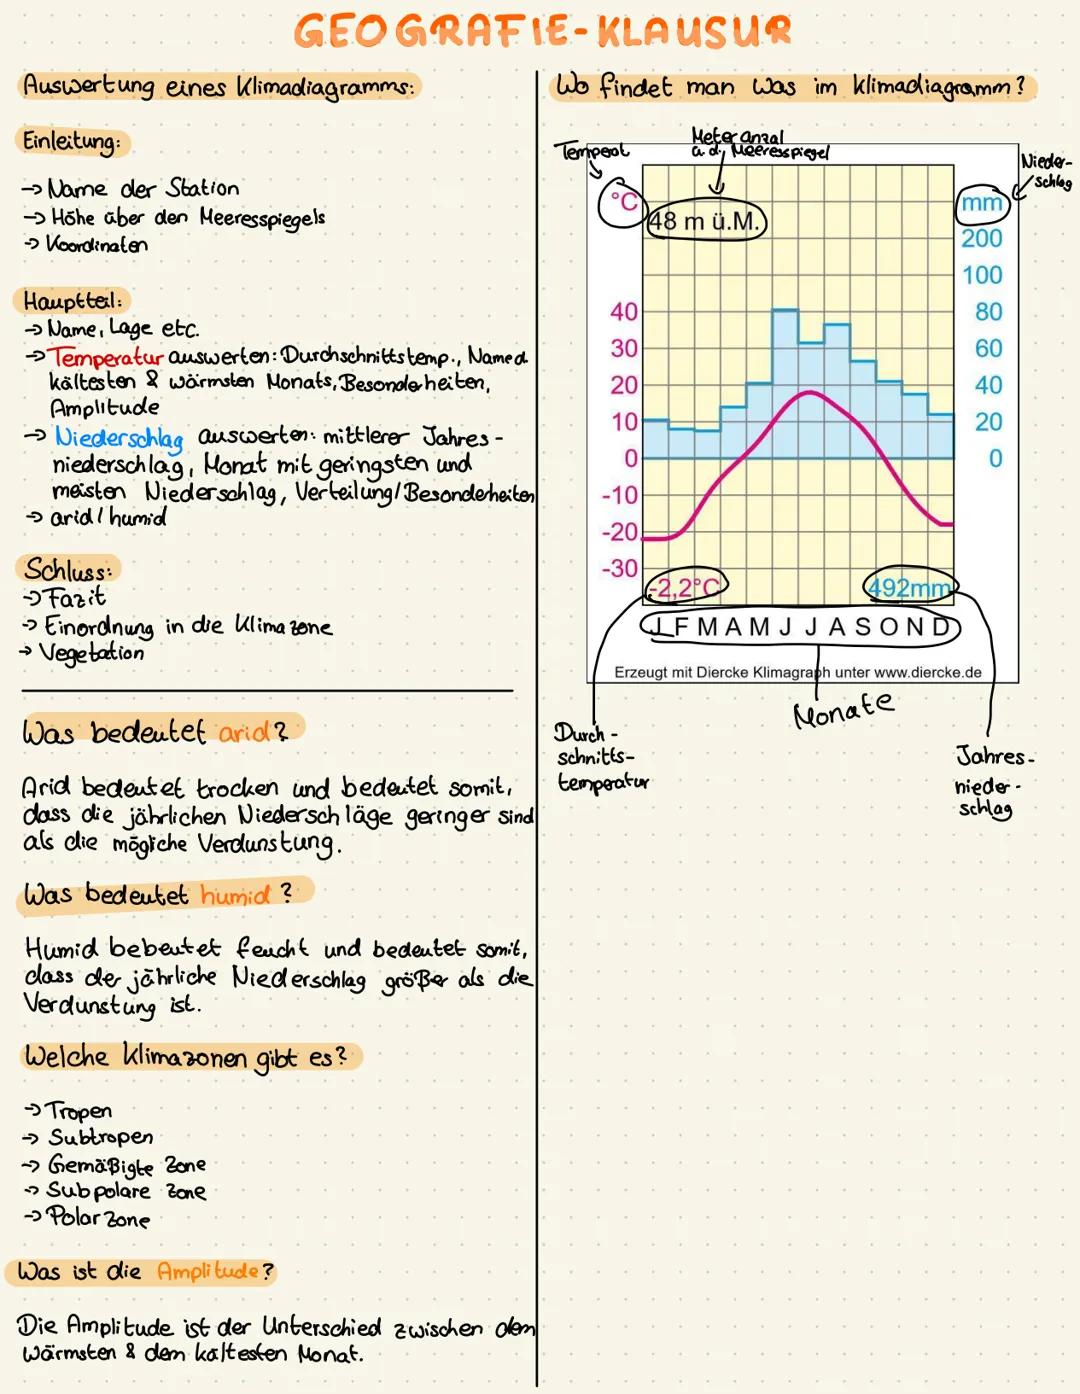 GEOGRAFIE-KLAUSUR
Auswertung eines Klimadiagramms:
Einleitung:
→ Name der Station
→ Höhe über den Meeresspiegels
→ Koordinaten
Hauptteil:
→ Name, Lage etc.
→ Temperatur auswerten: Durchschnittstemp., Name d.
kältesten & wärmsten Monats, Besonderheiten,
Amplitude
→ Niederschlag auswerten: mittlerer Jahres-
niederschlag, Monat mit geringsten und
meisten Niederschlag, Verteilung/Besonderheiten
→ arid / humid
Schluss:
→ Fazit
→ Einordnung in die Klimazone
→ Vegetation
Was bedeutet arid?
Arid bedeutet trocken und bedeutet somit,
dass die jährlichen Niederschläge geringer sind
als die mögliche Verdunstung.
Was bedeutet humid?
Humid bebeutet feucht und bedeutet somit,
dass der jährliche Niederschlag größer als die
Verdunstung ist.
Welche Klimazonen gibt es?
→ Tropen
→ Subtropen
→ Gemäßigte Zone
→ Subpolare Zone
→ Polar Zone
Was ist die Amplitude?
Die Amplitude ist der Unterschied zwischen dem
wärmsten & dem kältesten Monat.
Wo findet man was im Klimadiagramm?
Temperat
Meter anzal
a. d. Meeresspiegel
Nieder-
schlag
°C
48 m ü.M.
mm
200
100
40 80
30 60
20 40
10 20
0 0
-10
-20
-30
-2,2°C 492mm
J F M A M J J A S O N D
Erzeugt mit Diercke Klimagraph unter www.diercke.de
Monate
Durch-
schnitts-
temperatur
Jahres-
nieder-
schlag